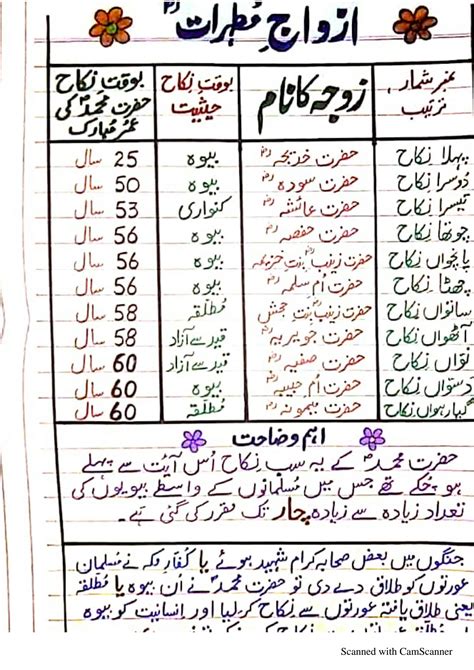 ازواجِ مُطہرات رض
نمبر شمار، ترتیب | زوجہ کا نام | بوقتِ نکاح حیثیت | بوقت نکاح حضرت محمدؐ کی عمر مُبارک
پہلا نکاح | حضرت خدیجہ رض | بیوہ | 25 سال
دُوسرا نِکاح | حضرت سودہ رض | بیوہ | 50 سال
تیسرا نِکاح | حضرت عائشہ رض | کنواری | 53 سال
چوتھا نِکاح | حضرت حفصہ رض | بیوہ | 56 سال
پانچواں نکاح | حضرت زینب بنتِ خزیمہ رض | بیوہ | 56 سال
چھٹا نِکاح | حضرت اُمِ سلمہ رض | بیوہ | 56 سال
ساتواں نکاح | حضرت زینب بنت جحش رض | مُطلقہ | 58 سال
آٹھواں نِکاح | حضرت جویریہ رض | قید سے آزاد | 58 سال
نواں نکاح | حضرت صفیہ رض | قید سے آزاد | 60 سال
دسواں نکاح | حضرت اُم حبیبہ رض | بیوہ | 60 سال
گیارہواں نکاح | حضرت میمونہ رض | مُطلقہ | 60 سال
اہم وضاحت
حضرت محمدؐ کے یہ سب نِکاح اُس آیت سے پہلے
ہو چُکے تھے جس میں مسلمانوں کے واسطے بیویوں کی
تعداد زیادہ سے زیادہ چار تک مقرر کی گئی ہے۔
جنگوں میں بعض صحابہ کرام شہید ہوئے یا کُفارِ مکہ نے مسلمان
عورتوں کو طلاق دے دی تو حضرت محمدؐ نے اُن بیوہ یا مُطلقہ
یعنی طلاق یافتہ عورتوں سے نکاح کر لیا اور انسانیت کو بیوہ
Scanned with CamScanner